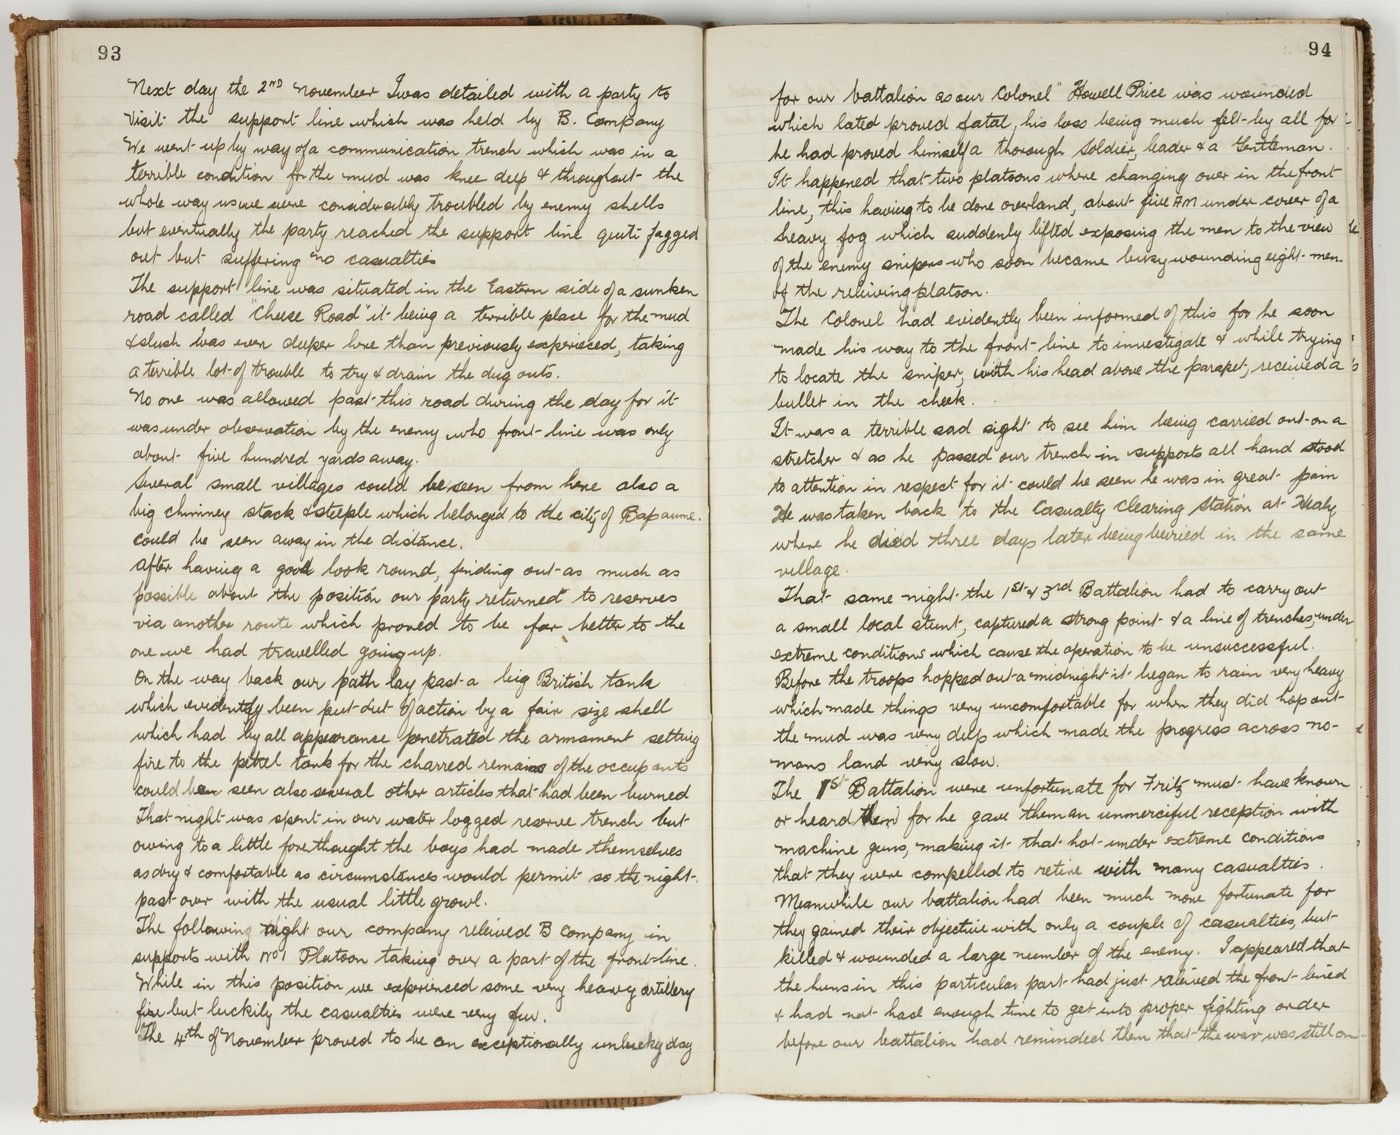 93
Next day the 2ND November I was detailed with a party to
visit the support line which was held by B. Company
We went up by way of a communication trench which was in a
terrible condition for the mud was knee deep & throughout the
whole way us we were considerably troubled by enemy shells
but eventually the party reached the support line quite fagged
out but suffering no casualties
The support line was situated in the Eastern side of a sunken
road called "Cheese Road" it being a terrible place for the mud
& slush was even deeper here than previously experieced, taking
a terrible lot of trouble to try & drain the dug outs.
No one was allowed past this road during the day for it
was under observation by the enemy who front-line was only
about five hundred yards away.
Several small villages could be seen from here also a
big chimney stack & steeple which belonged to the city of Bapaume.
could be seen away in the distance.
After having a good look round, finding out as much as
possible about the position our party returned to reserves
via another route which proved to be far better to the
one we had travelled going up.
On the way back our path lay past a big British tank
which evidently been put out of action by a fair size shell
which had by all appearance penetrated the armament setting
fire to the petrol tank for the charred remains of the occupants
could been seen also several other articles that had been burned
That night was spent in our water logged reserve trench but
owing to a little forethought the boys had made themselves
as dry & comfortable as circumstances would permit so the night
past over with the usual little growl.
The following night our company releived B Company in
supports with No 1 Platoon taking over a part of the front-line.
While in this position we experienced some very heavy artillery
fire but luckily the casualties were very few.
The 4th of November proved to be an exceptionally unlucky day
94
for our battalion as our Colonel" Howell Price was wounded
which lated proved fatal, his loss being much felt by all for
he had proved himself a thorough Soldier, leader & a Gentleman.
It happened that two platoons where changing over in the front
line, this having to be done overland, about five AM under cover of a
heavy fog which suddenly lifted exposing the men to the view
of the enemy snipers who soon became busy wounding eight men.
of the releiving platoon.
The Colonel had evidently been informed of this for he soon
made his way to the front-line to investigate & while trying
to locate the sniper, with his head above the parapet, received a
bullet in the cheek.
It was a terrible sad sight to see him being carried out on a
stretcher & as he passed our trench in supports all hand stood
to attention in respect for it could be seen he was in great pain
He was taken back to the Casualty Clearing Station at Healy
where he died three days later being beiried in the same
village.
That same night the 1st & 3rd Battalion had to carry out
a small local stunt, captured a strong point & a line of trenches, under
extreme conditions which cause the operation to be unsuccessful.
Before the troops hopped out a midnight it began to rain very heavy
which made things very uncomfortable for when they did hop out
the mud was very deep which made the progress across no-
mans land very slow.
The 1St Battalion were unfortunate for Fritz must have known
or heard them for he gave them an unmerciful reception with
machine guns, making it that hot under extreme conditions
that they were compelled to retire with many casualties.
Meanwhile our battalion had been much more fortunate for
they gained their objective with only a couple of casualties, but
killed & wounded a large number of the enemy. I appeared that
the huns in this particular part had just releived the front-lined
& had not had enough time to get into proper fighting order
before our battalion had reminded them that the war was still on